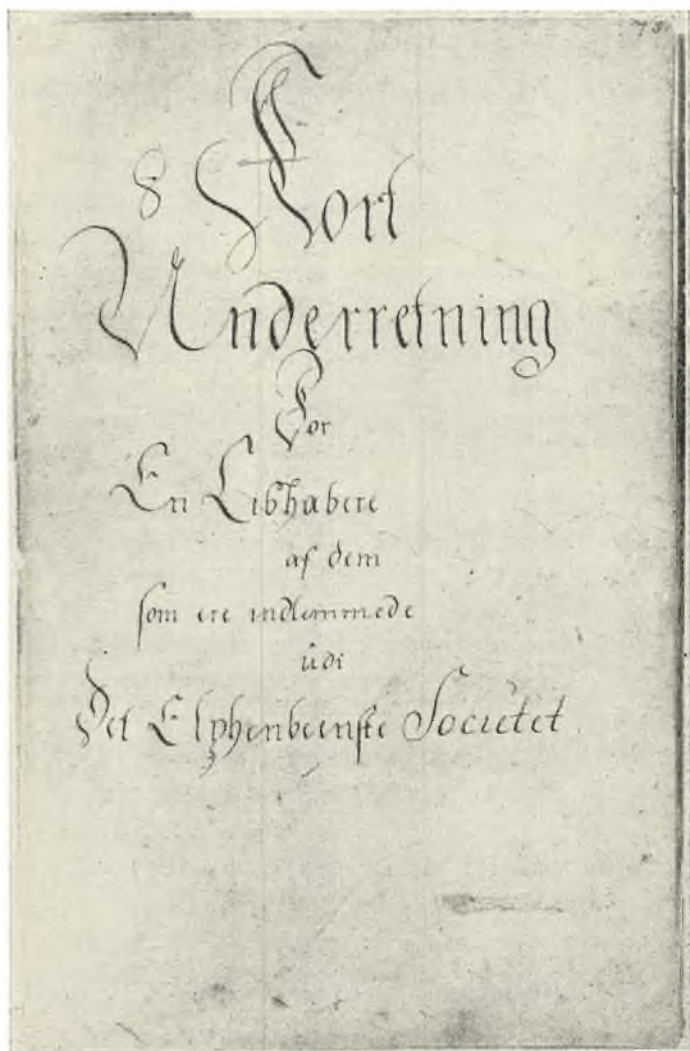 73.
8 Kort
Underretning
For
En Libhabere
af dem
som ere indlemmede
üdi
Det Elphenbeenste Societet